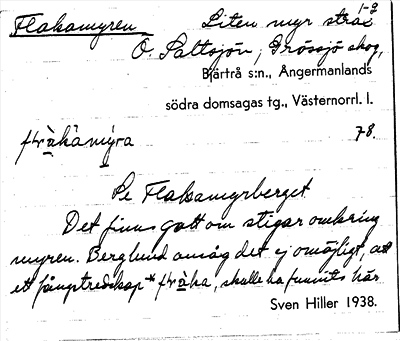 Flakamyren Liten myr strax 1-2
O. Saltsjön, Grössjö skog,
Bjärtrå s:n., Ångermanlands
södra domsagas tg., Västernorrl. l.
78.
Se Flakamyrberget
Det finns gott om stigar omkring
myren. Berglund ansåg det ej omöjligt, att
ett fångstredskap * skulle ha funnits här
Sven Hiller 1938.